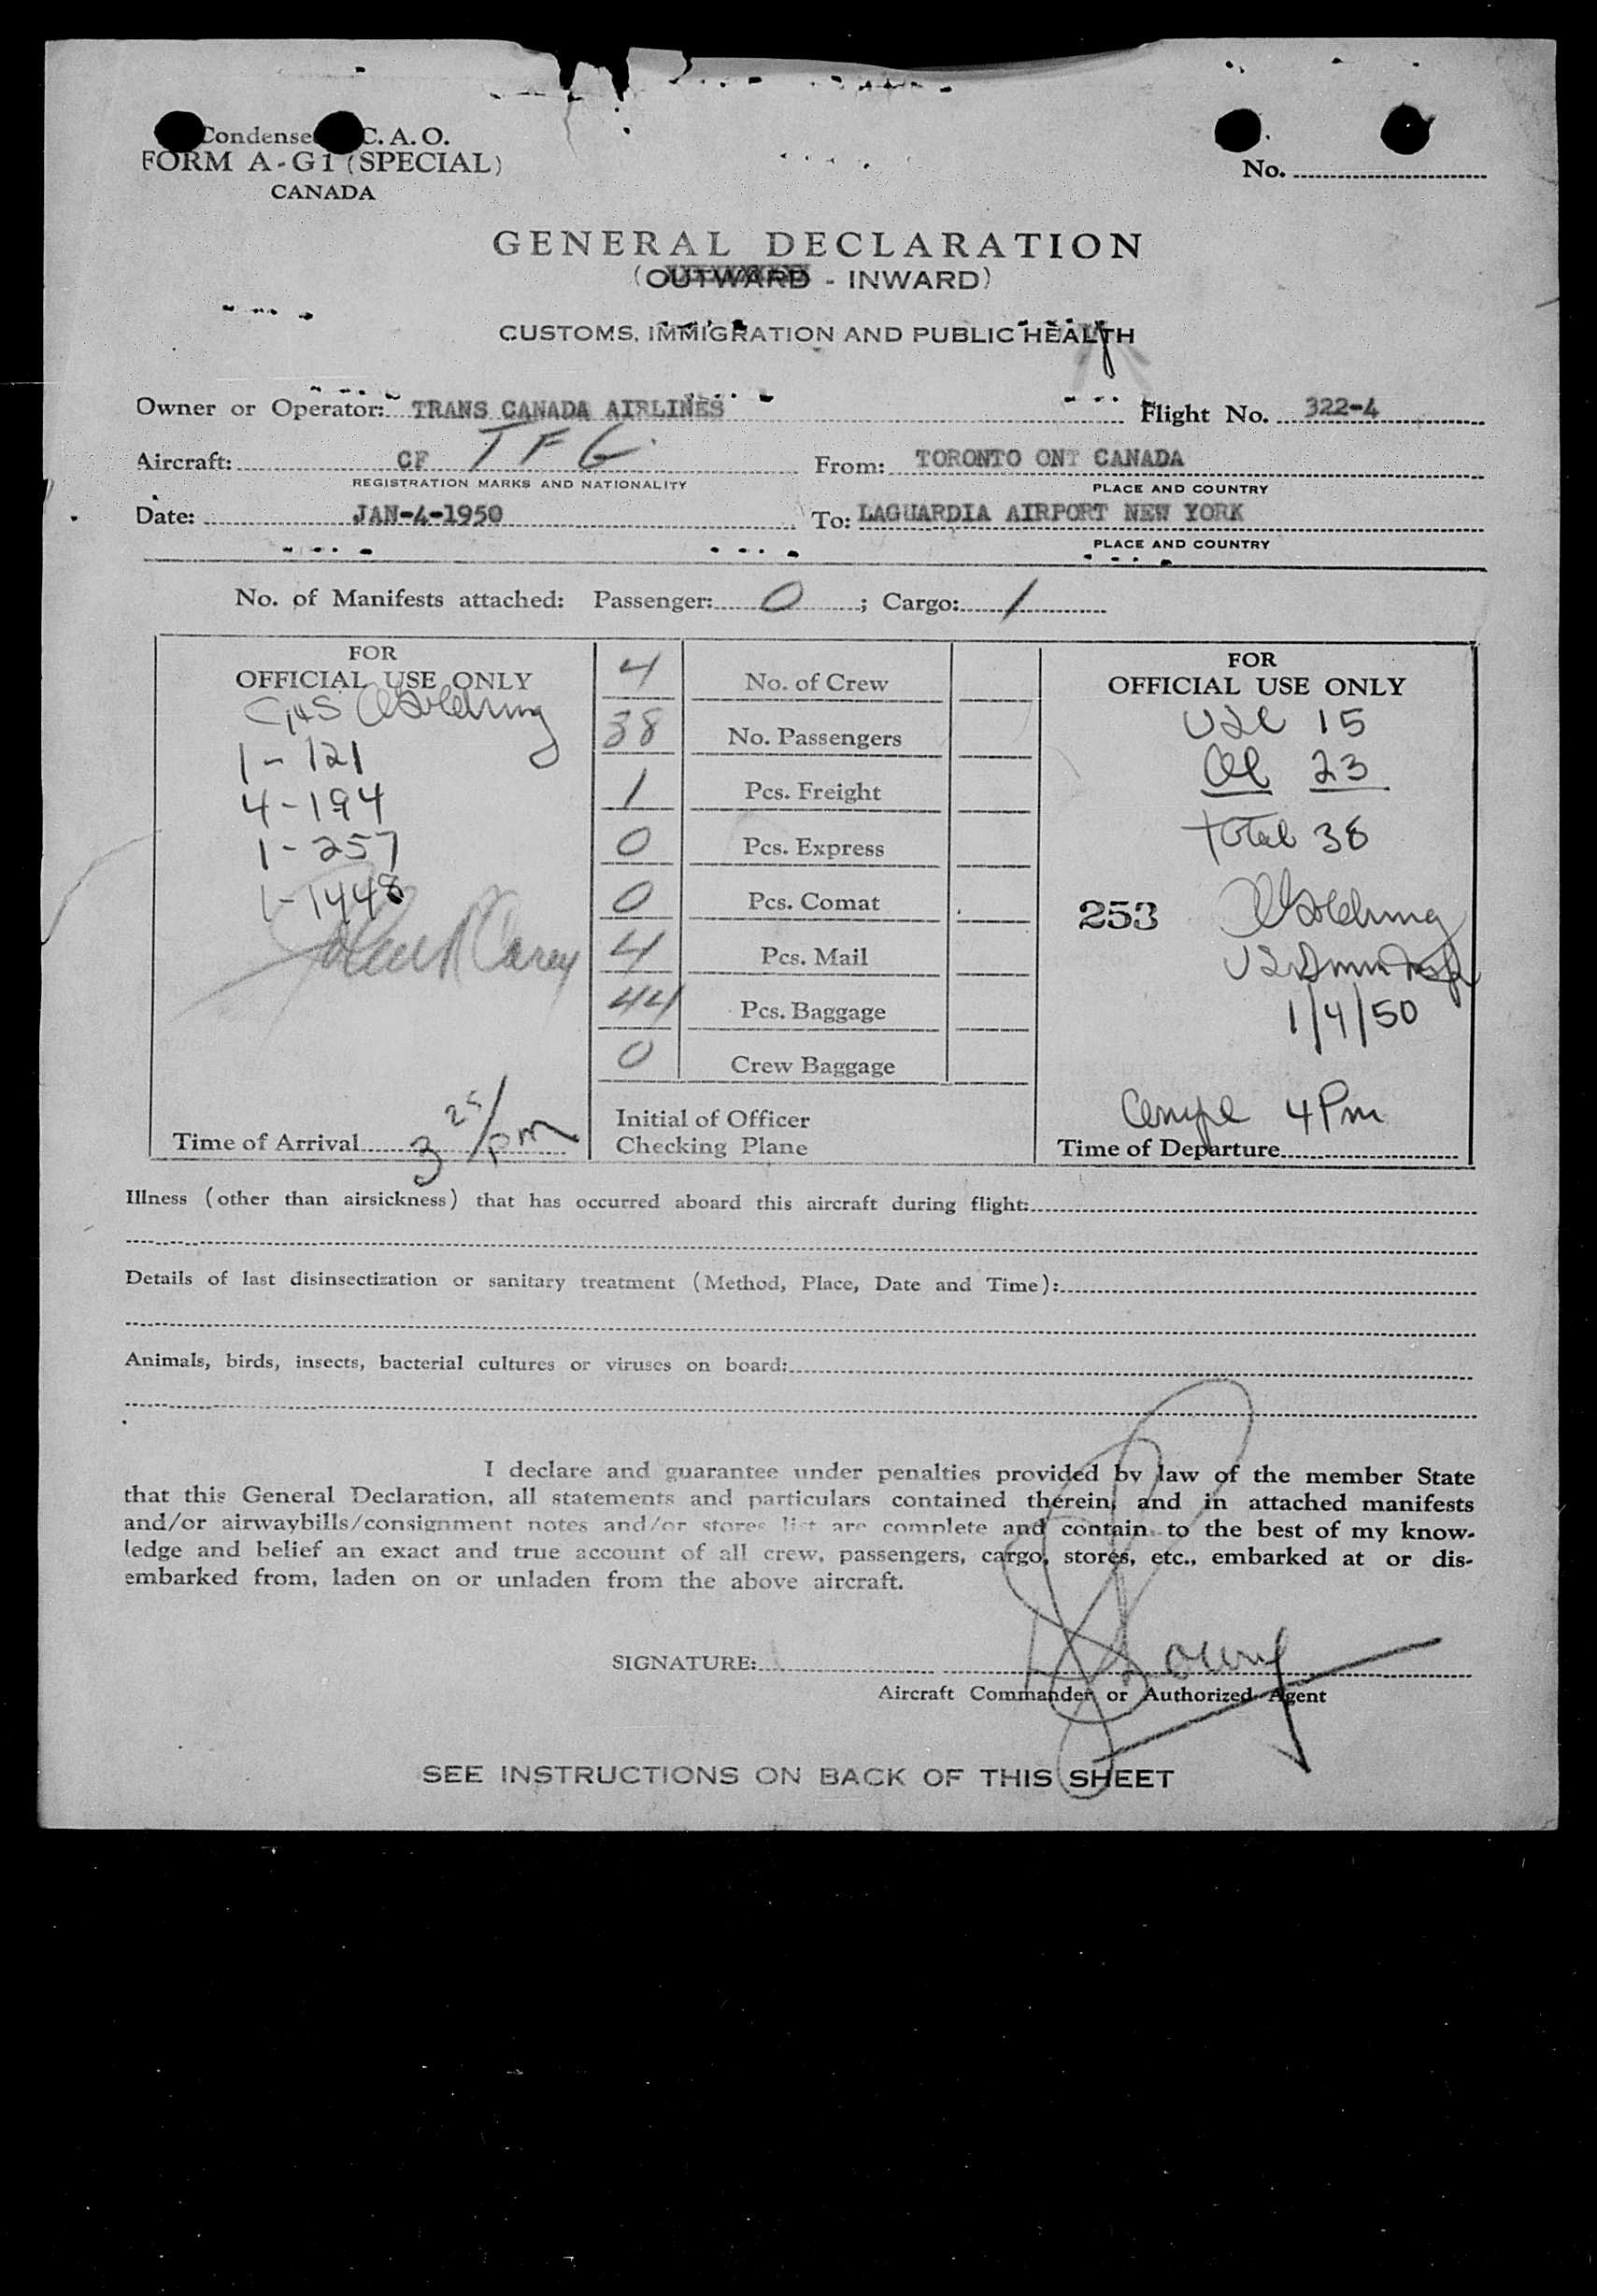 Condense C. A. O.
FORM A-G1 (SPECIAL)
CANADA
No.
GENERAL DECLARATION
(OUTWARD - INWARD)
CUSTOMS, IMMIGRATION AND PUBLIC HEALTH
Owner or Operator: TRANS CANADA AIRLINES Flight No. 322-4
Aircraft: CF TFG From: TORONTO ONT CANADA
REGISTRATION MARKS AND NATIONALITY PLACE AND COUNTRY
Date: JAN-4-1950 To: LAGUARDIA AIRPORT NEW YORK
PLACE AND COUNTRY
No. of Manifests attached: Passenger: 0 ; Cargo: 1
FOR
OFFICIAL USE ONLY
1-121
4-194
1-257
1-1448
Carey
Time of Arrival 3 25/pm
4 No. of Crew
38 No. Passengers
1 Pcs. Freight
0 Pcs. Express
0 Pcs. Comat
4 Pcs. Mail
44 Pcs. Baggage
0 Crew Baggage
Initial of Officer
Checking Plane
FOR
OFFICIAL USE ONLY
USC 15
Al 23
Total 38
253
1/4/50
4 Pm
Time of Departure
Illness (other than airsickness) that has occurred aboard this aircraft during flight:
Details of last disinsectization or sanitary treatment (Method, Place, Date and Time):
Animals, birds, insects, bacterial cultures or viruses on board:
I declare and guarantee under penalties provided by law of the member State
that this General Declaration, all statements and particulars contained therein, and in attached manifests
and/or airwaybills/consignment notes and/or stores list are complete and contain to the best of my know-
ledge and belief an exact and true account of all crew, passengers, cargo, stores, etc., embarked at or dis-
embarked from, laden on or unladen from the above aircraft.
SIGNATURE:
Aircraft Commander or Authorized Agent
SEE INSTRUCTIONS ON BACK OF THIS SHEET